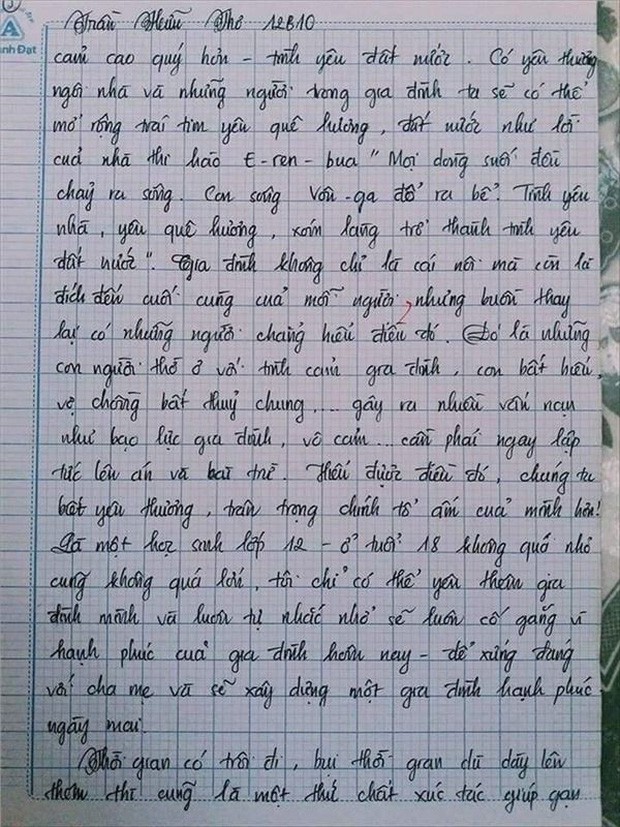 Trần Hữu Thơ 12B10
nh Đạt
cảm cao quý hơn - tình yêu đất nước. Có yêu thương
ngôi nhà và những người trong gia đình ta sẽ có thể
mở rộng trái tim yêu quê hương, đất nước như lời
của nhà thi hào E-ren-bua "Mọi dòng suối đều
chảy ra sông. Con sông Vôn-ga đổ ra bể. Tình yêu
nhà, yêu quê hương, xóm làng trở thành tình yêu
đất nước". Gia đình không chỉ là cái nôi mà còn là
đích đến cuối cùng của mỗi người, nhưng buồn thay
lại có những người chẳng hiểu điều đó. Đó là những
con người thờ ơ với tình cảm gia đình, con bất hiếu,
vợ chồng bất thuỷ chung,... gây ra nhiều vấn nạn
như bạo lực gia đình, vô cảm... cần phải ngay lập
tức lên án và bài trừ. Hiểu được điều đó, chúng ta
biết yêu thương, trân trọng chính tổ ấm của mình hơn!
Là một học sinh lớp 12 - ở tuổi 18 không quá nhỏ
cũng không quá lớn, tôi chỉ có thể yêu thêm gia
đình mình và luôn tự nhắc nhở sẽ luôn cố gắng vì
hạnh phúc của gia đình hôm nay - để xứng đáng
với cha mẹ và sẽ xây dựng một gia đình hạnh phúc
ngày mai.
Thời gian có trôi đi, bụi thời gian dù dày lên
thêm thì cũng là một thứ chất xúc tác giúp gạn